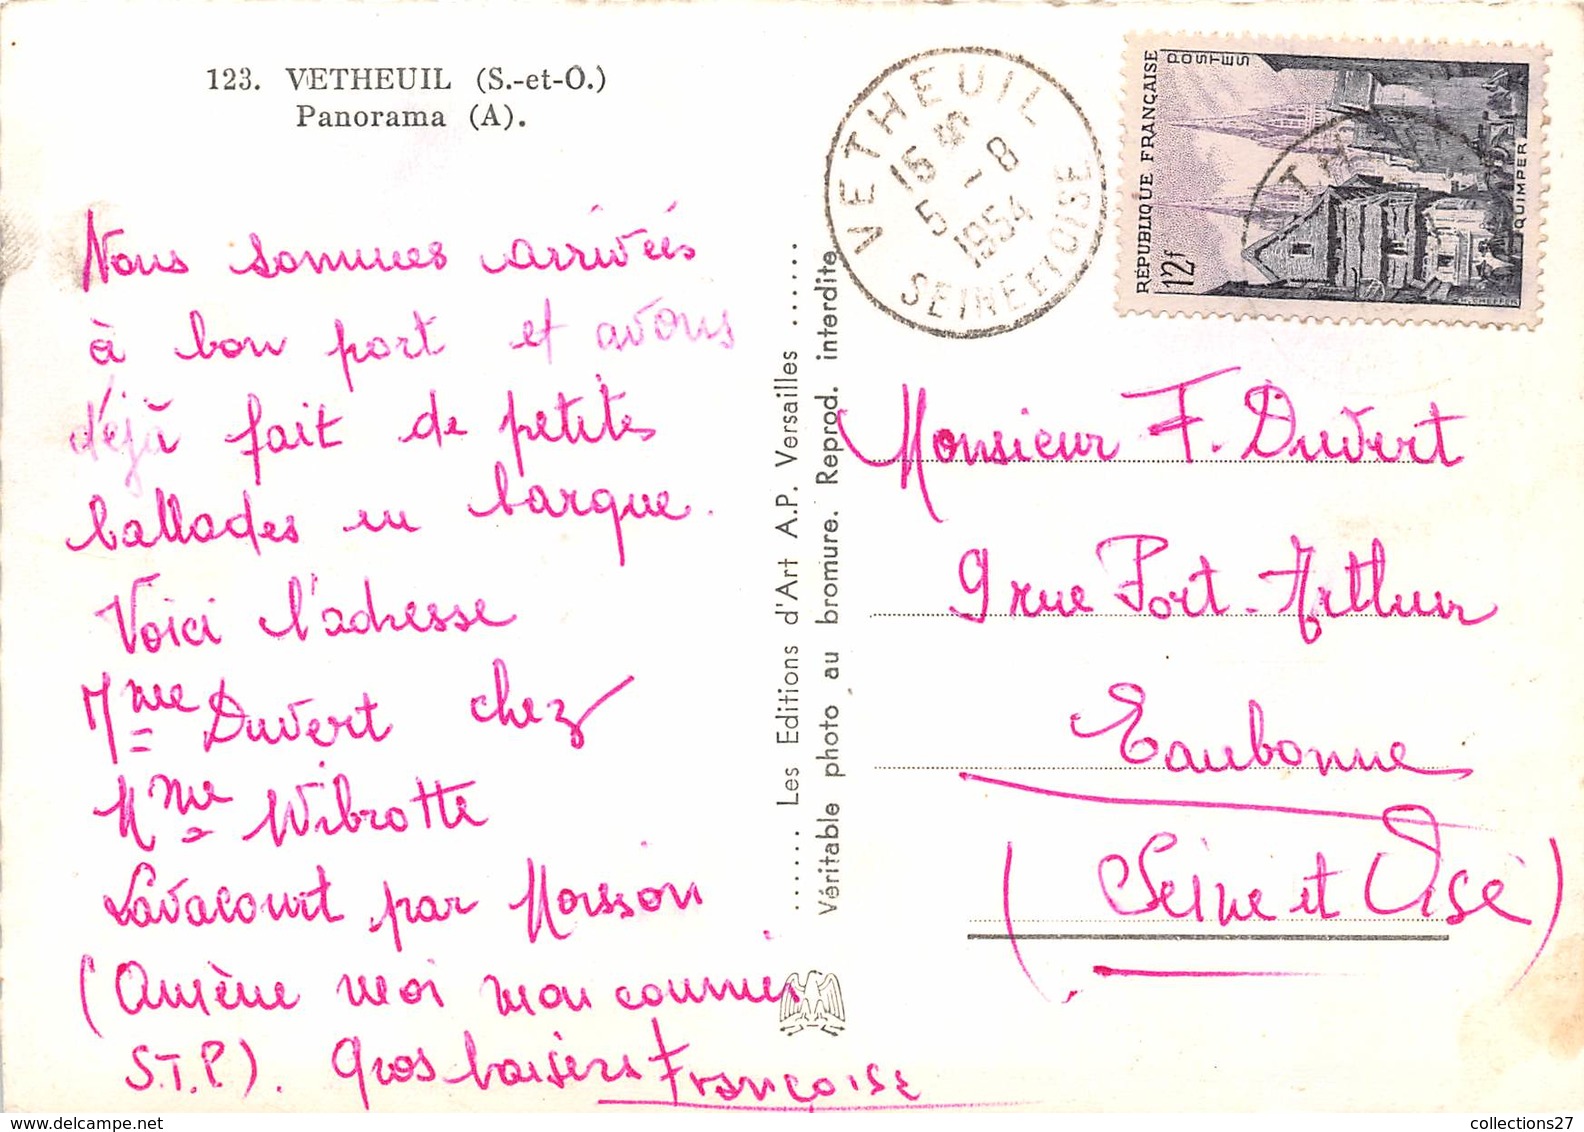 123. VETHEUIL (S.-et-O.)
Panorama (A).
Nous sommes arrivées
à bon port et avons
déjà fait de petites
ballades en barque.
Voici l'adresse
Mme Duvert chez
Mme Wibrotte
Lavacourt par Moisson
(Amène moi mon courrier
S.T.P.). Gros baisers Françoise
...... Les Editions d'Art A.P. Versailles ......
Véritable photo au bromure. Reprod. interdite
VETHEUIL
15
5 - 8
1954
SEINE ET OISE
RÉPUBLIQUE FRANÇAISE
POSTES
12f
QUIMPER
Monsieur F. Duvert
9 rue Port-Arthur
Eaubonne
(Seine et Oise)
collections27